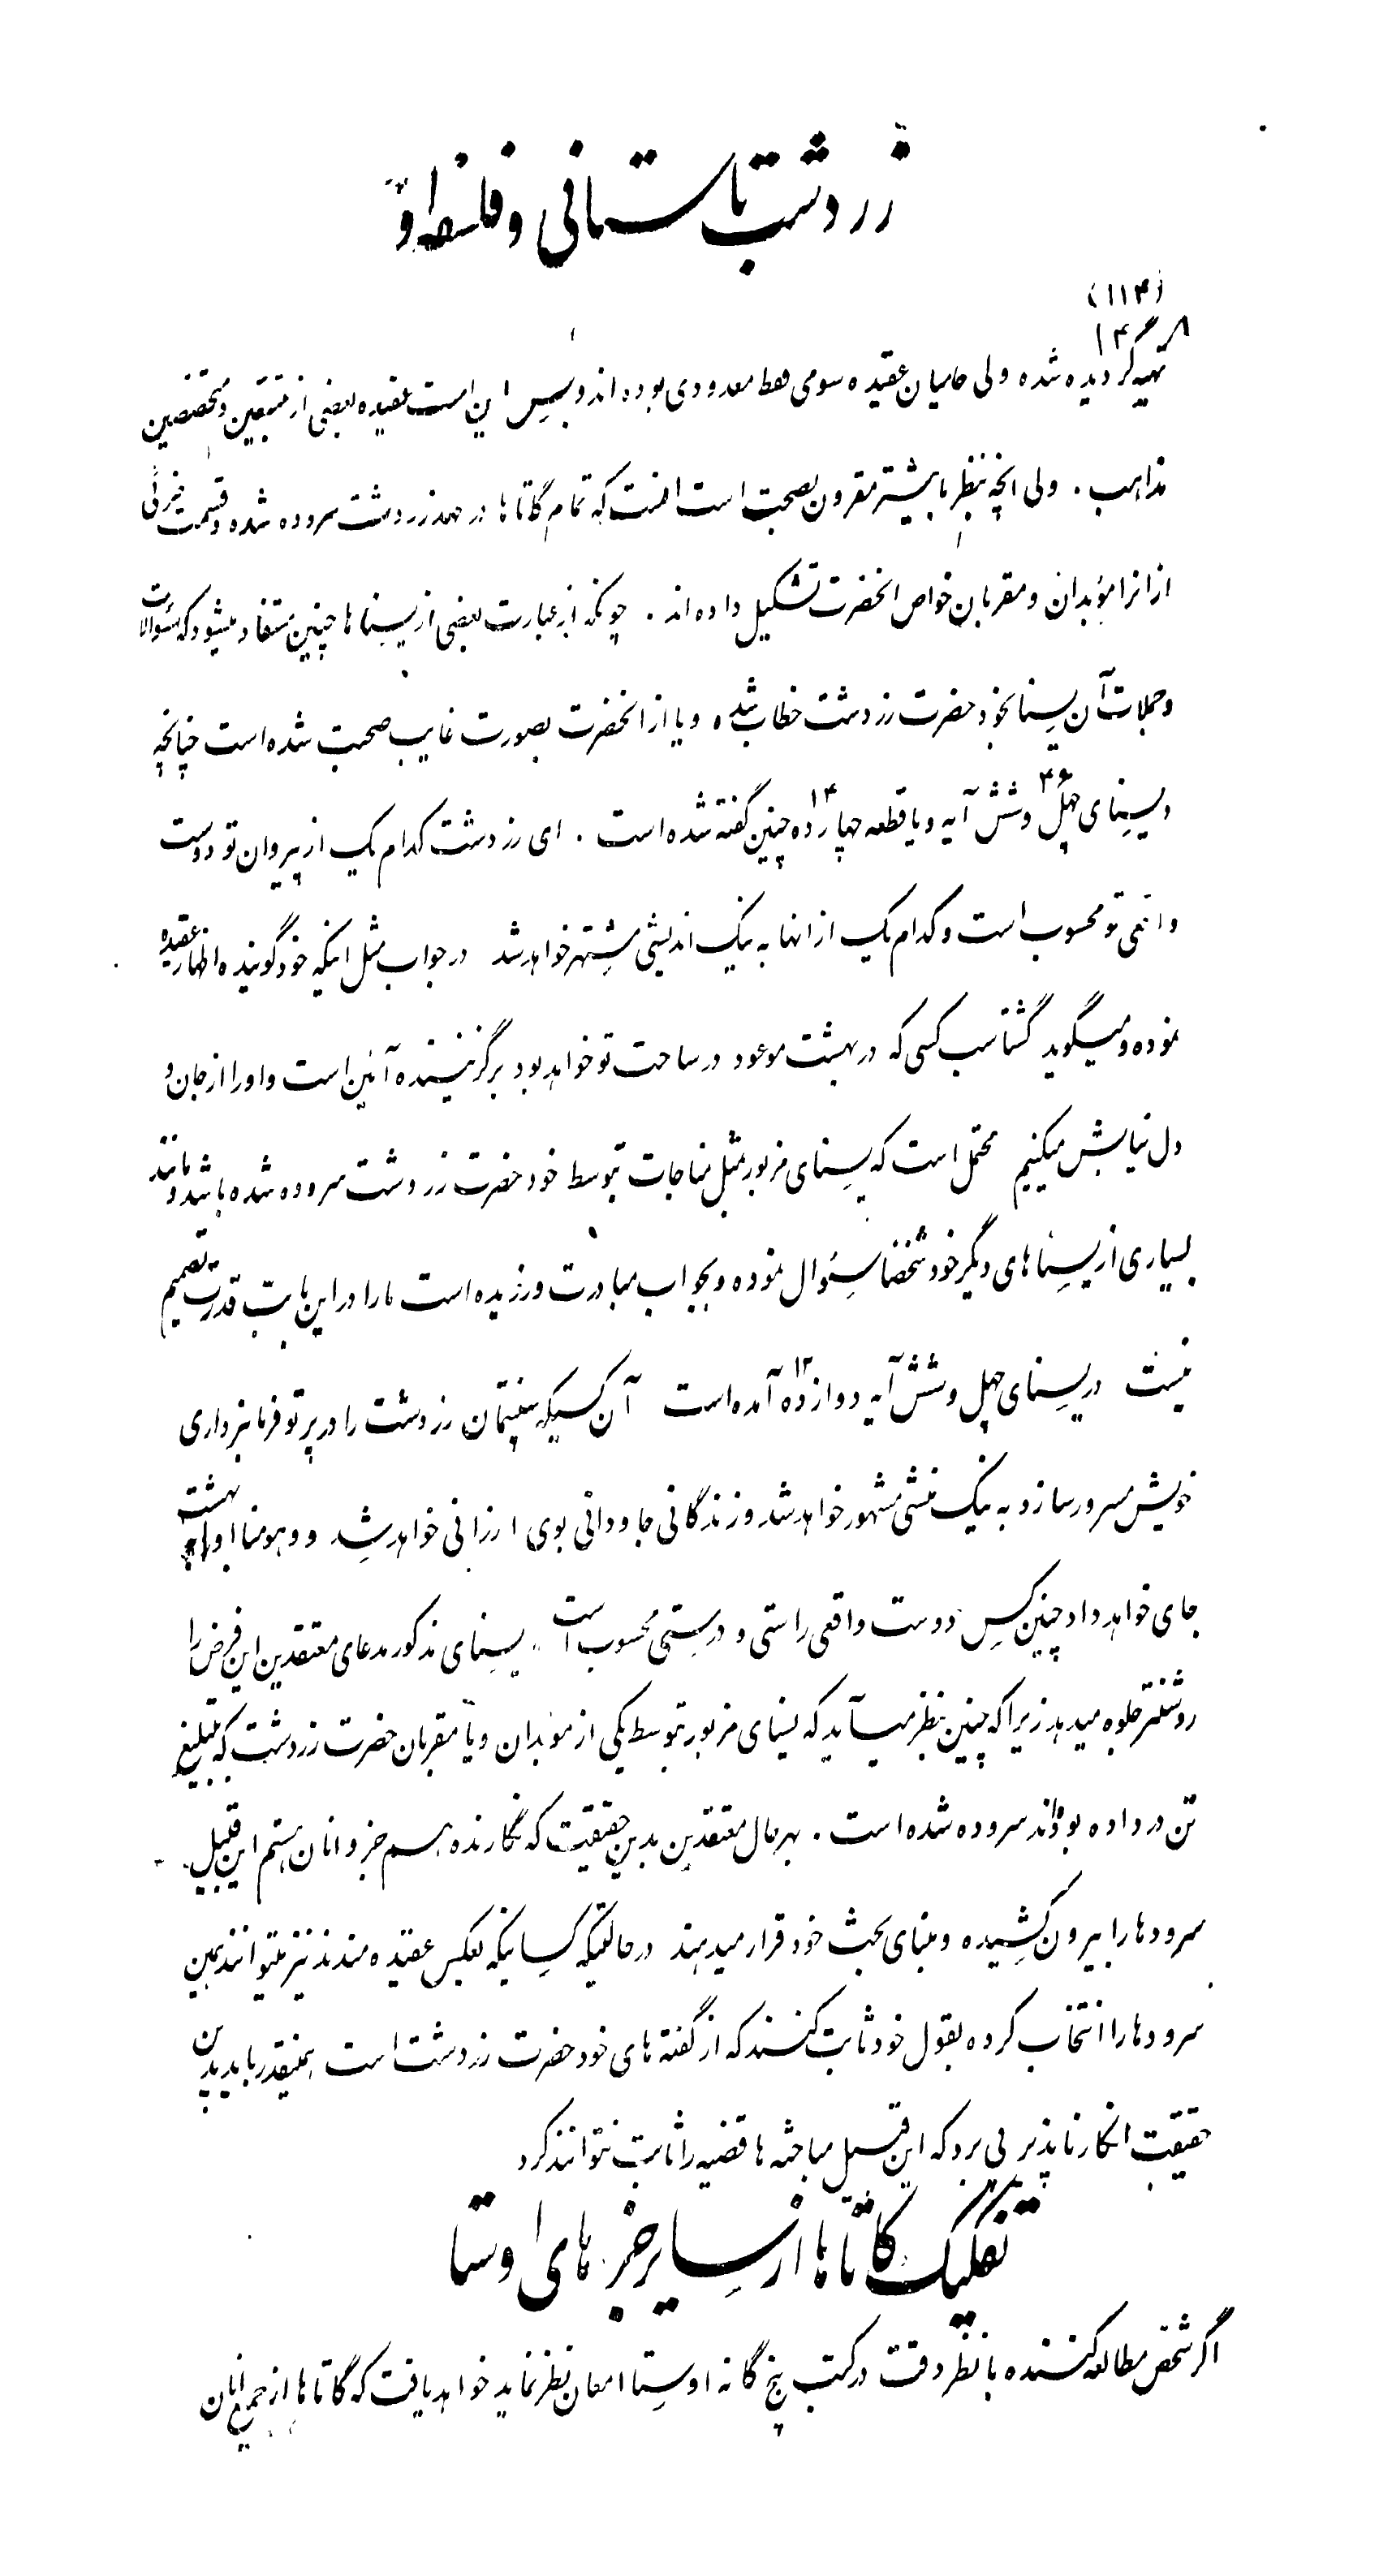 زردشت باستانی و فلسفه او
(۱۱۴)
تهیه گردیده شده ولی حامیان عقیده سومی فقط معدودی بوده اند و بس این است عقیده بعضی از متتبعین و متخصصین
مذاهب . ولی انچه بنظر ما بیشتر مقرون بصحت است اینست که تمام گاتا ها در عهد زردشت سروده شده و قسمت جزئی
از انرا موبدان و مقربان خواص انحضرت تشکیل داده اند . چونکه از عبارت بعضی از یسناها چنین مستفاد میشود که سئوالات
و جملات آن یسنا بخود حضرت زردشت خطاب شده و یا از انحضرت بصورت غایب صحبت شده است چنانچه
در یسنای چهل و شش ۴۶ آیه و یا قطعه چهارده ۱۴ چنین گفته شده است . ای زردشت کدام یک از پیروان تو دوست
واقعی تو محسوب است و کدام یک از انها به نیک اندیشی مشتهر خواهد شد در جواب مثل اینکه خود گوینده اظهار عقیده
نموده و میگوید گشتاسب کسی که در بهشت موعود در ساحت تو خواهد بود برگزیننده آئین است و او را از جان و
دل نیایش میکنیم محتمل است که یسنای مزبور مثل مناجات بتوسط خود حضرت زردشت سروده شده باشد و مانند
بسیاری از یسناهای دیگر خود شخصا سئوال نموده و بجواب مبادرت ورزیده است ما را در این بابت قدرت تصمیم
نیست در یسنای چهل و شش آیه دوازده ۱۲ آمده است آن کسیکه سپنتمان زردشت را در پرتو فرمانبرداری
خویش مسرور سازد به نیک منشی مشهور خواهد شد و زندگانی جاودانی بوی ارزانی خواهد شد و وهومنا او را بهشت
جای خواهد داد چنین کس دوست واقعی راستی و درستی محسوب است .. یسنای مذکور مدعای معتقدین این فرض را
روشنتر جلوه میدهد زیرا که چنین بنظر میآید که یسنای مزبور بتوسط یکی از موبدان و یا مقربان حضرت زردشت که بتبلیغ
تن در داده بوده‌اند سروده شده است . بهر حال معتقدین بدین حقیقت که نگارنده هم جزو انان هستم این قبیل
سرودها را بیرون کشیده و مبنای بحث خود قرار میدهند در حالتیکه کسانیکه بعکس عقیده مندند نیز میتوانند همین
سرودها را انتخاب کرده بقول خود ثابت کنند که از گفته های خود حضرت زردشت است همینقدر باید بدین
حقیقت انکار ناپذیر پی برد که این قبیل مباحثه ها قضیه را ثابت نتوانند کرد
تفکیک گاتا ها از سایر جزء های اوستا
اگر شخص مطالعه کننده با نظر دقت در کتب پنج گانه اوستا امعان نظر نماید خواهد یافت که گاتا ها از جمیع انان